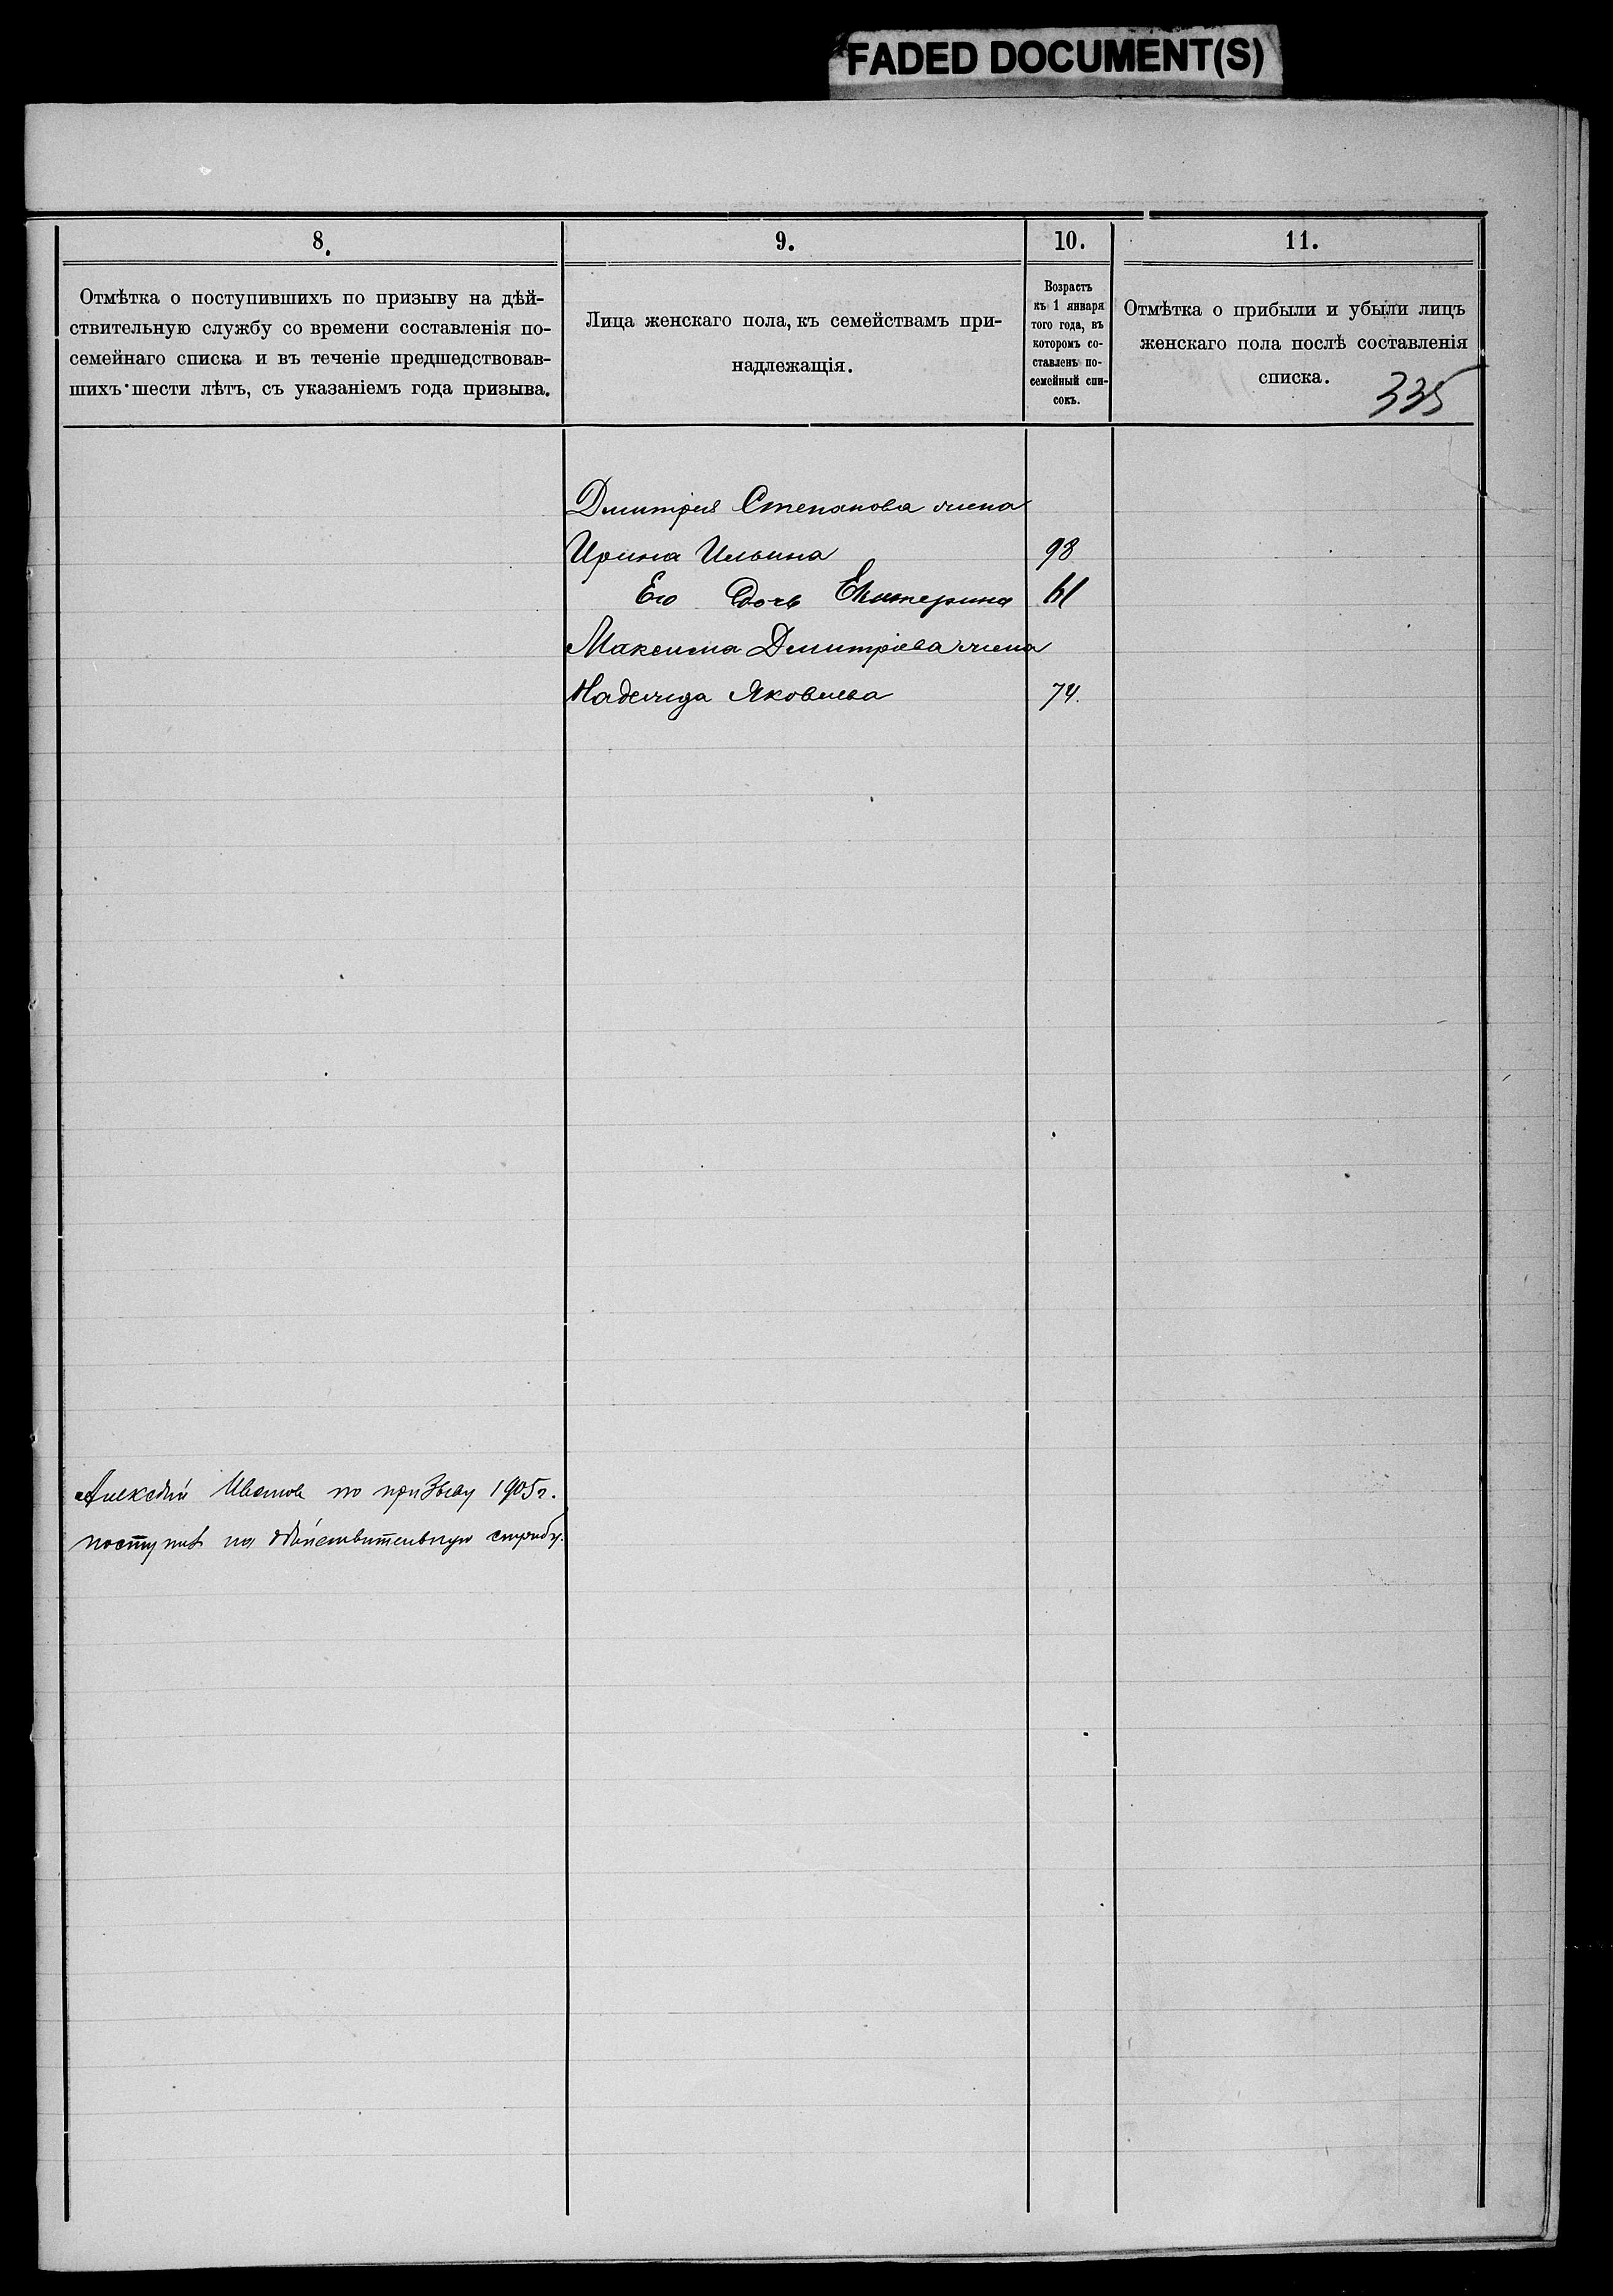 FADED DOCUMENT(S)
8.
9.
10.
11.
Отмѣтка о поступившихъ по призыву на дѣй-
ствительную службу со времени составленія по-
семейнаго списка и въ теченіе предшедствовав-
шихъ шести лѣтъ, съ указаніемъ года призыва.
Лица женскаго пола, къ семействамъ при-
надлежащія.
Возрастъ
къ 1 января
того года, въ
которомъ со-
ставленъ по-
семейный спи-
сокъ.
Отмѣтка о прибыли и убыли лицъ
женскаго пола послѣ составленія
списка.
335
Дмитрія Степанова жена
Ирина Ильина 98
Его дочь Екатерина 61
Максима Дмитріева жена
Надежда Яковлева 74.
Алексѣй Иванов по призыву 1905 г.
поступил на дѣйствительную службу.